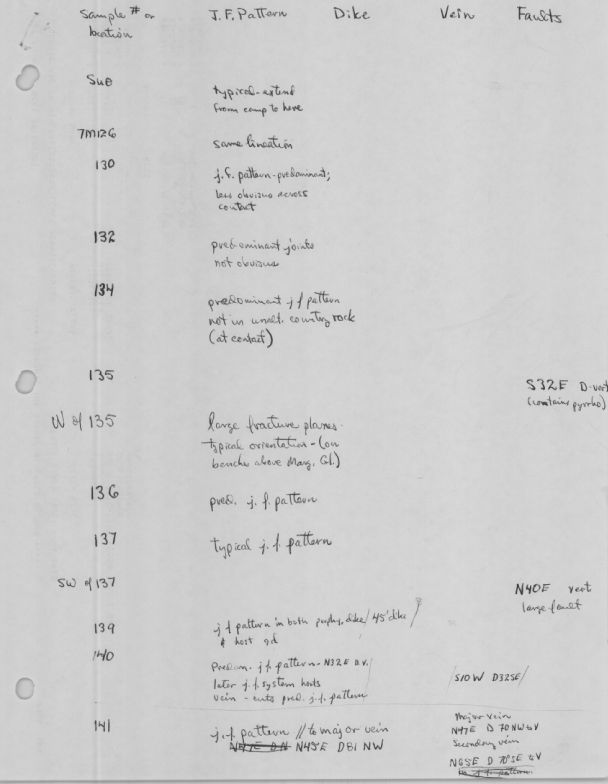 Sample # or location
J.F. Pattern
Dike
Vein
Faults
Sue
typical - extend
from camp to here
7M126
same lineation
130
j.f. pattern - predominant;
less obvious across
contact
132
predominant joints
not obvious
134
predominant j f pattern
not in unalt. country rock
(at contact)
135
S32E D-vert
(contains pyrrho)
W of 135
large fracture planes.
typical orientation - (on
benche above Marg. Gl.)
136
pred. j. f. pattern
137
typical j. f. pattern
SW of 137
N40E vert
large fault
139
j f pattern in both porphy. dike / 45' dike /
& host gd
140
Predom. j f pattern - N32E D.V.
later j. f. system hosts
vein - cuts pred. j. f. pattern
/S10W D32SE/
141
j. f. pattern // to major vein
N45E D81 NW
Major vein
N47E D 70NW to V
Secondary vein
N65E D 78SE to V